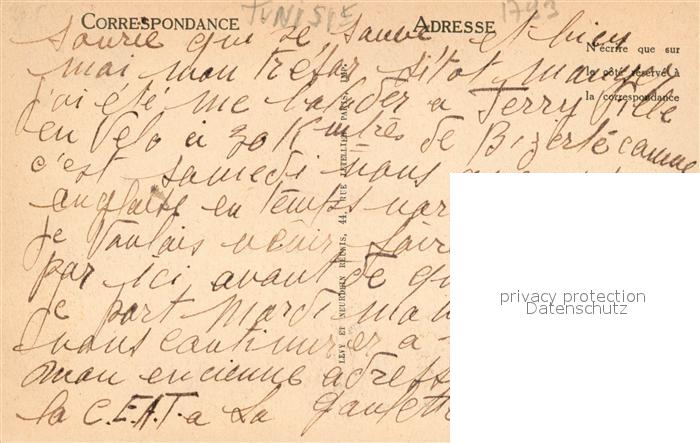 CORRESPONDANCE
TUNISIE
ADRESSE
1793
N'écrire que sur
le côté réservé à
la correspondance
sourie qui se sauve et bien
moi mon Tréssor sitot mangé
j'ai été me balader a Ferry Ville
en Velo a 30 Kmtrès de Bizerte comme
c'est samedi nous
anglaise en temps nor
je Voulais voir
par ici avant de qu
de part Mardi ma
vous continuer a
mon encienne adresse
la C.E.A.T. a La Goulette
LEVY ET NEURDEIN RÉUNIS, 44, RUE LETELLIER, PARIS. IMP.
privacy protection
Datenschutz